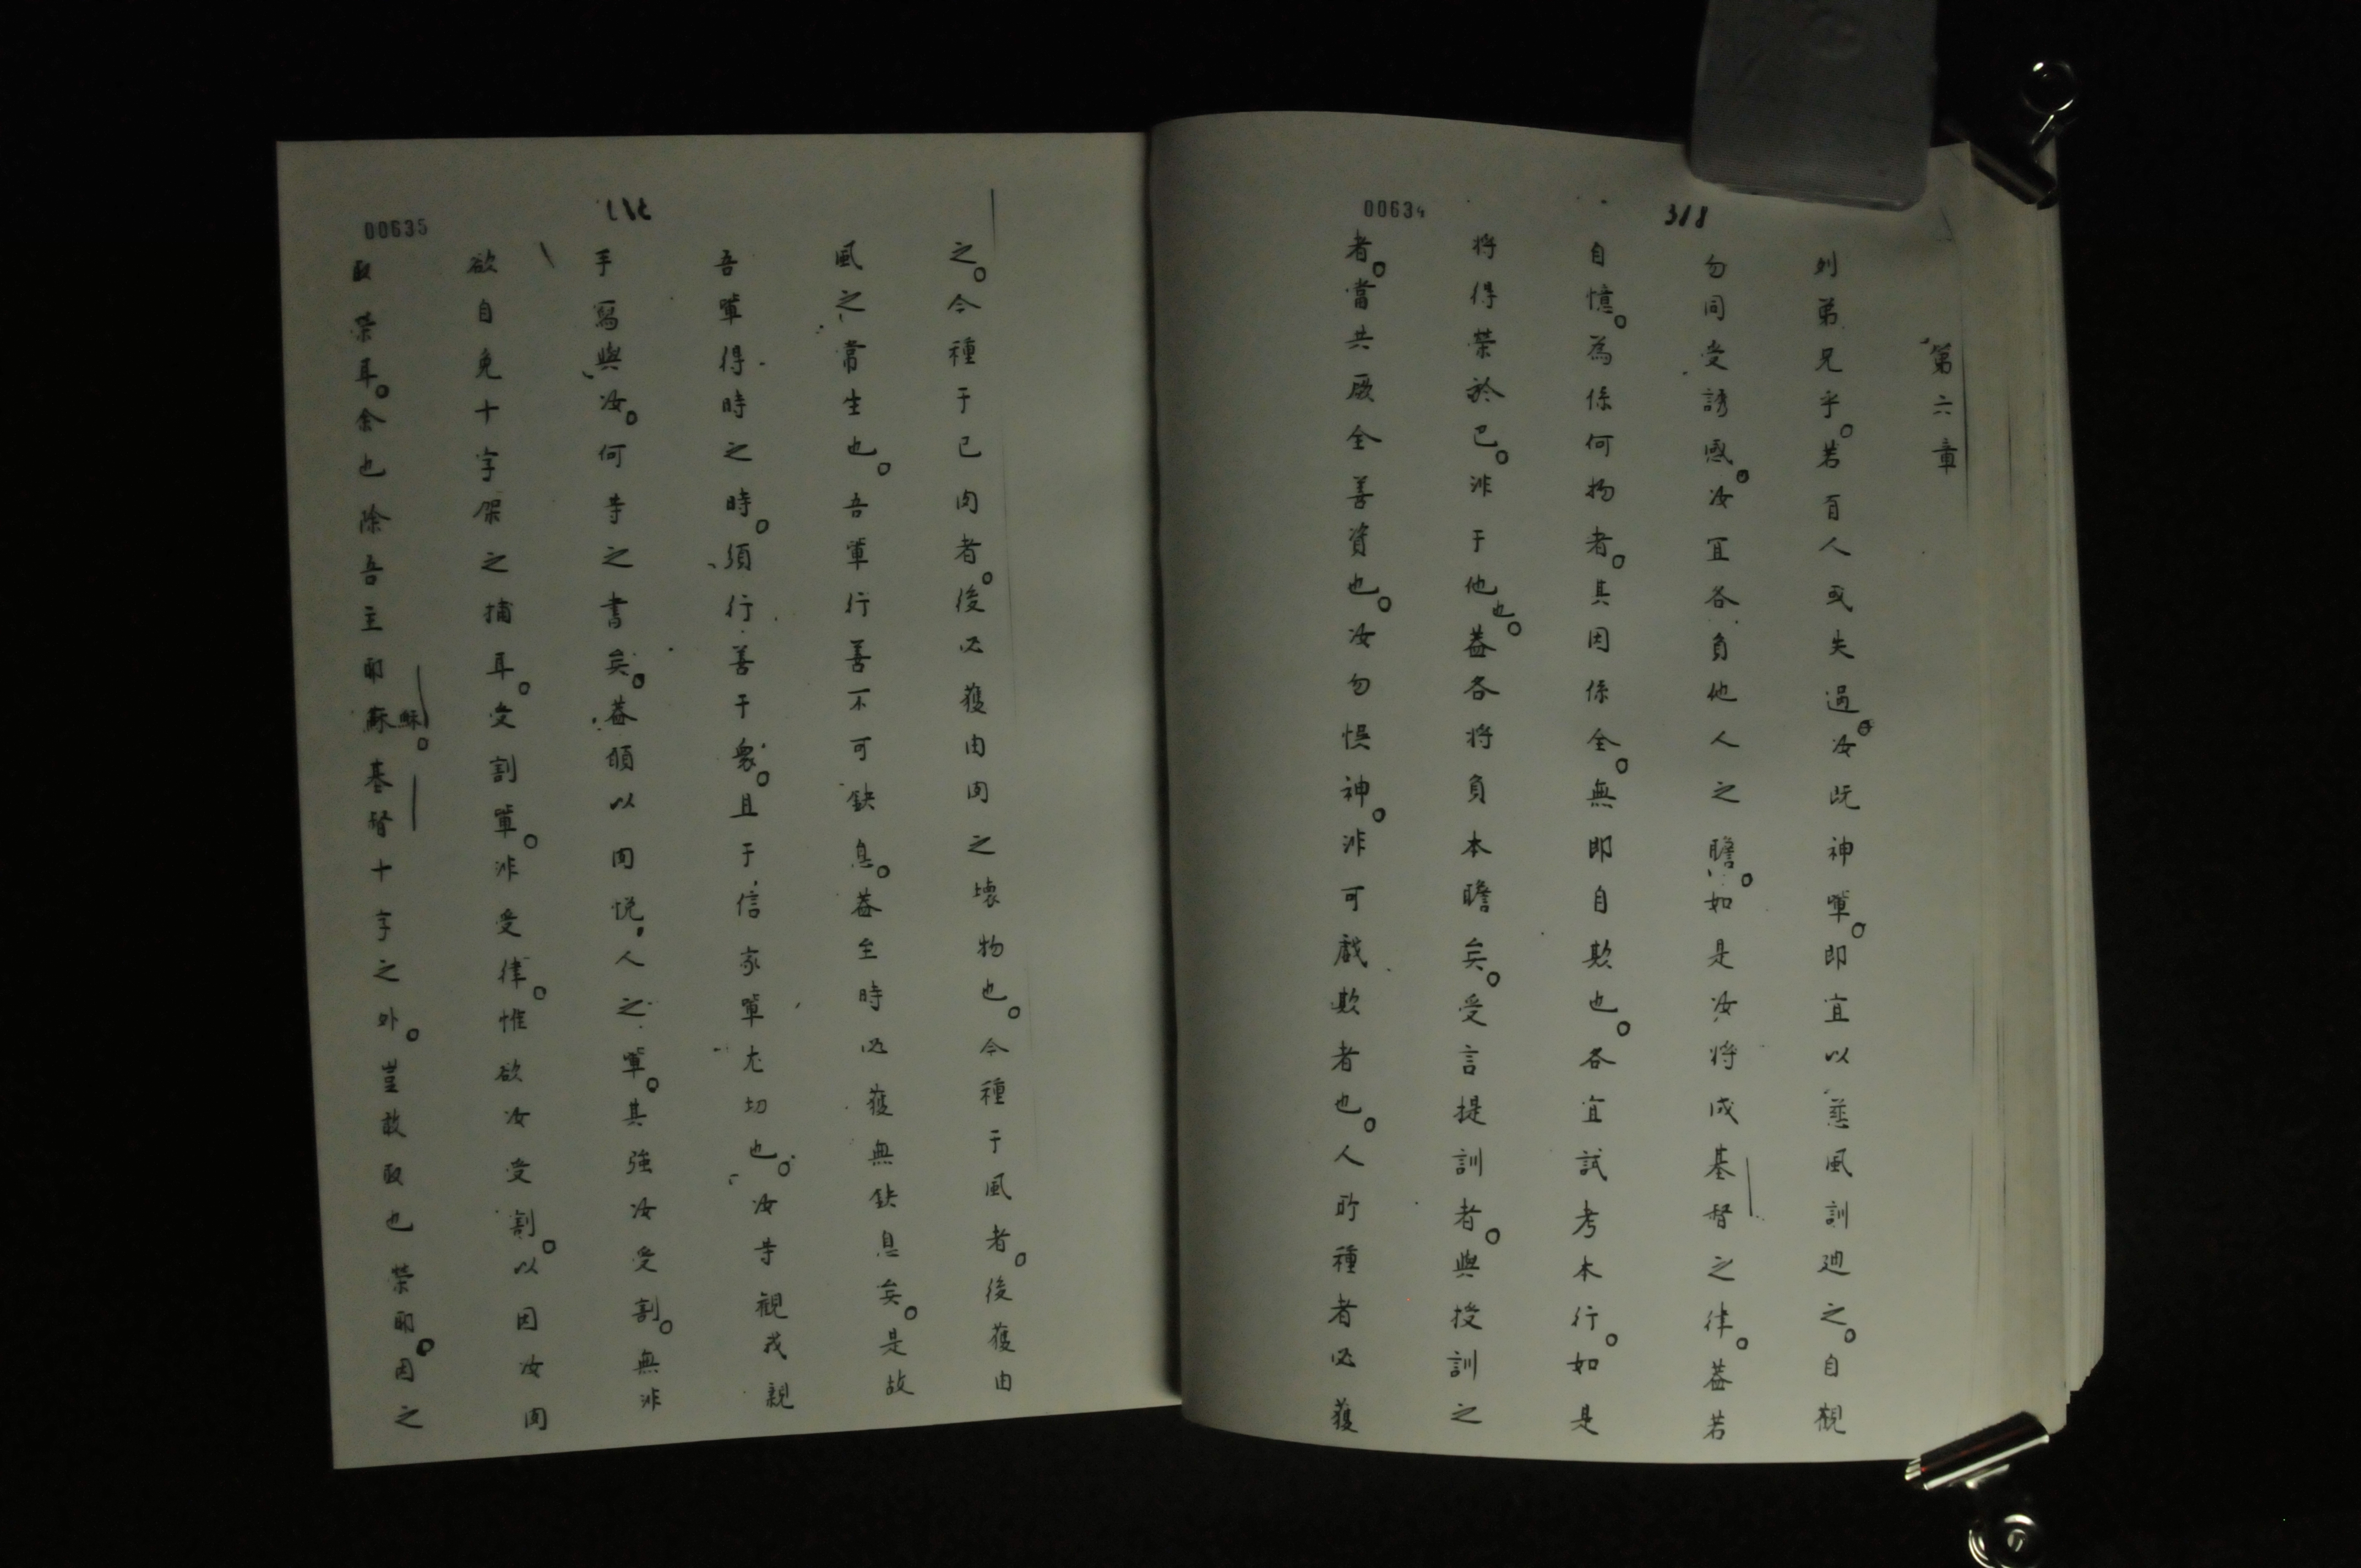 00634
318
第六章
列弟兄乎。若百人或失過。汝既神輩。即宜以慈風訓廸之。自観
勿同受誘感。汝宜各負他人之瞻。如是汝将成基督之律。葢若
自憶。為係何物者。其因係全。無即自欺也。各宜試考本行。如是
将得榮於己。非于他也。葢各将負本瞻矣。受言提訓者。與授訓之
者。當共厥全善資也。汝勿悮神。非可戯欺者也。人所種者必獲
00635
之。今種于己肉者。後必獲由肉之壊物也。今種于風者。後獲由
風之常生也。吾輩行善不可缺息。葢至時必獲無缺息矣。是故
吾輩得時之時。須行善于衆。且于信家輩尤切也。汝等観我親
手寫與汝。何等之書矣。葢頋以肉悅人之輩。其強汝受割。無非
欲自免十字架之捕耳。受割輩。非受律。惟欲汝受割。以因汝肉
取榮耳。余也除吾主耶穌。基督十字之外。豈敢取也榮耶。因之